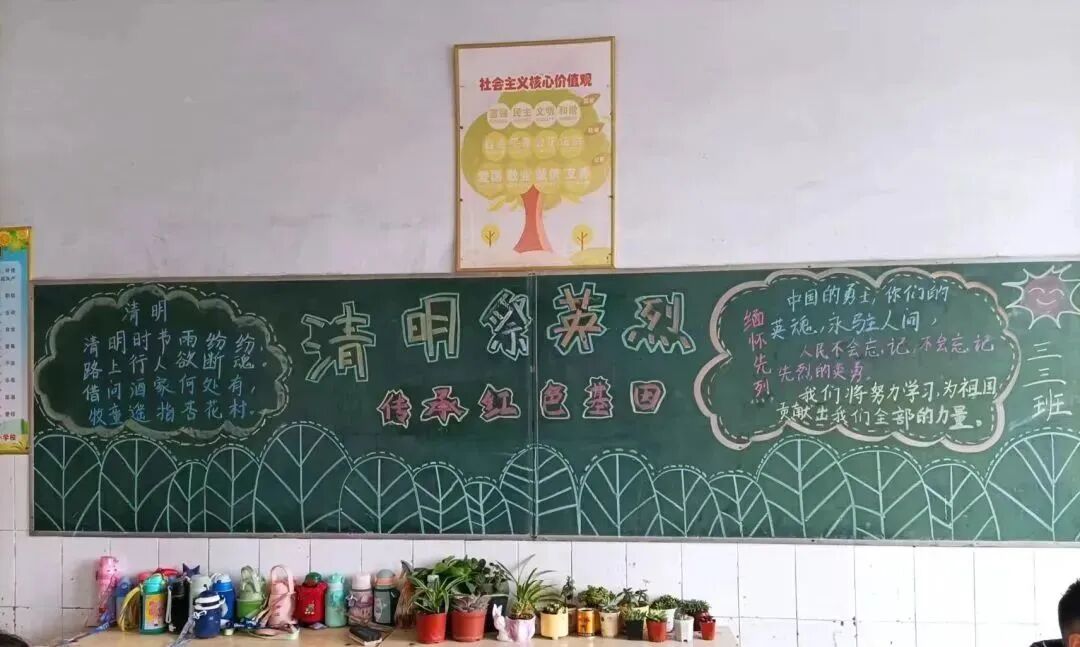 社会主义核心价值观
富强 民主 文明 和谐
自由 平等 公正 法治
爱国 敬业 诚信 友善
清明
清明时节雨纷纷，
路上行人欲断魂。
借问酒家何处有，
牧童遥指杏花村。
清明祭英烈
传承红色基因
缅怀先烈
中国的勇士，你们的
英魂，永驻人间，
人民不会忘记，不会忘记
先烈的英勇。
我们将努力学习，为祖国
贡献出我们全部的力量。
三三班
小学校